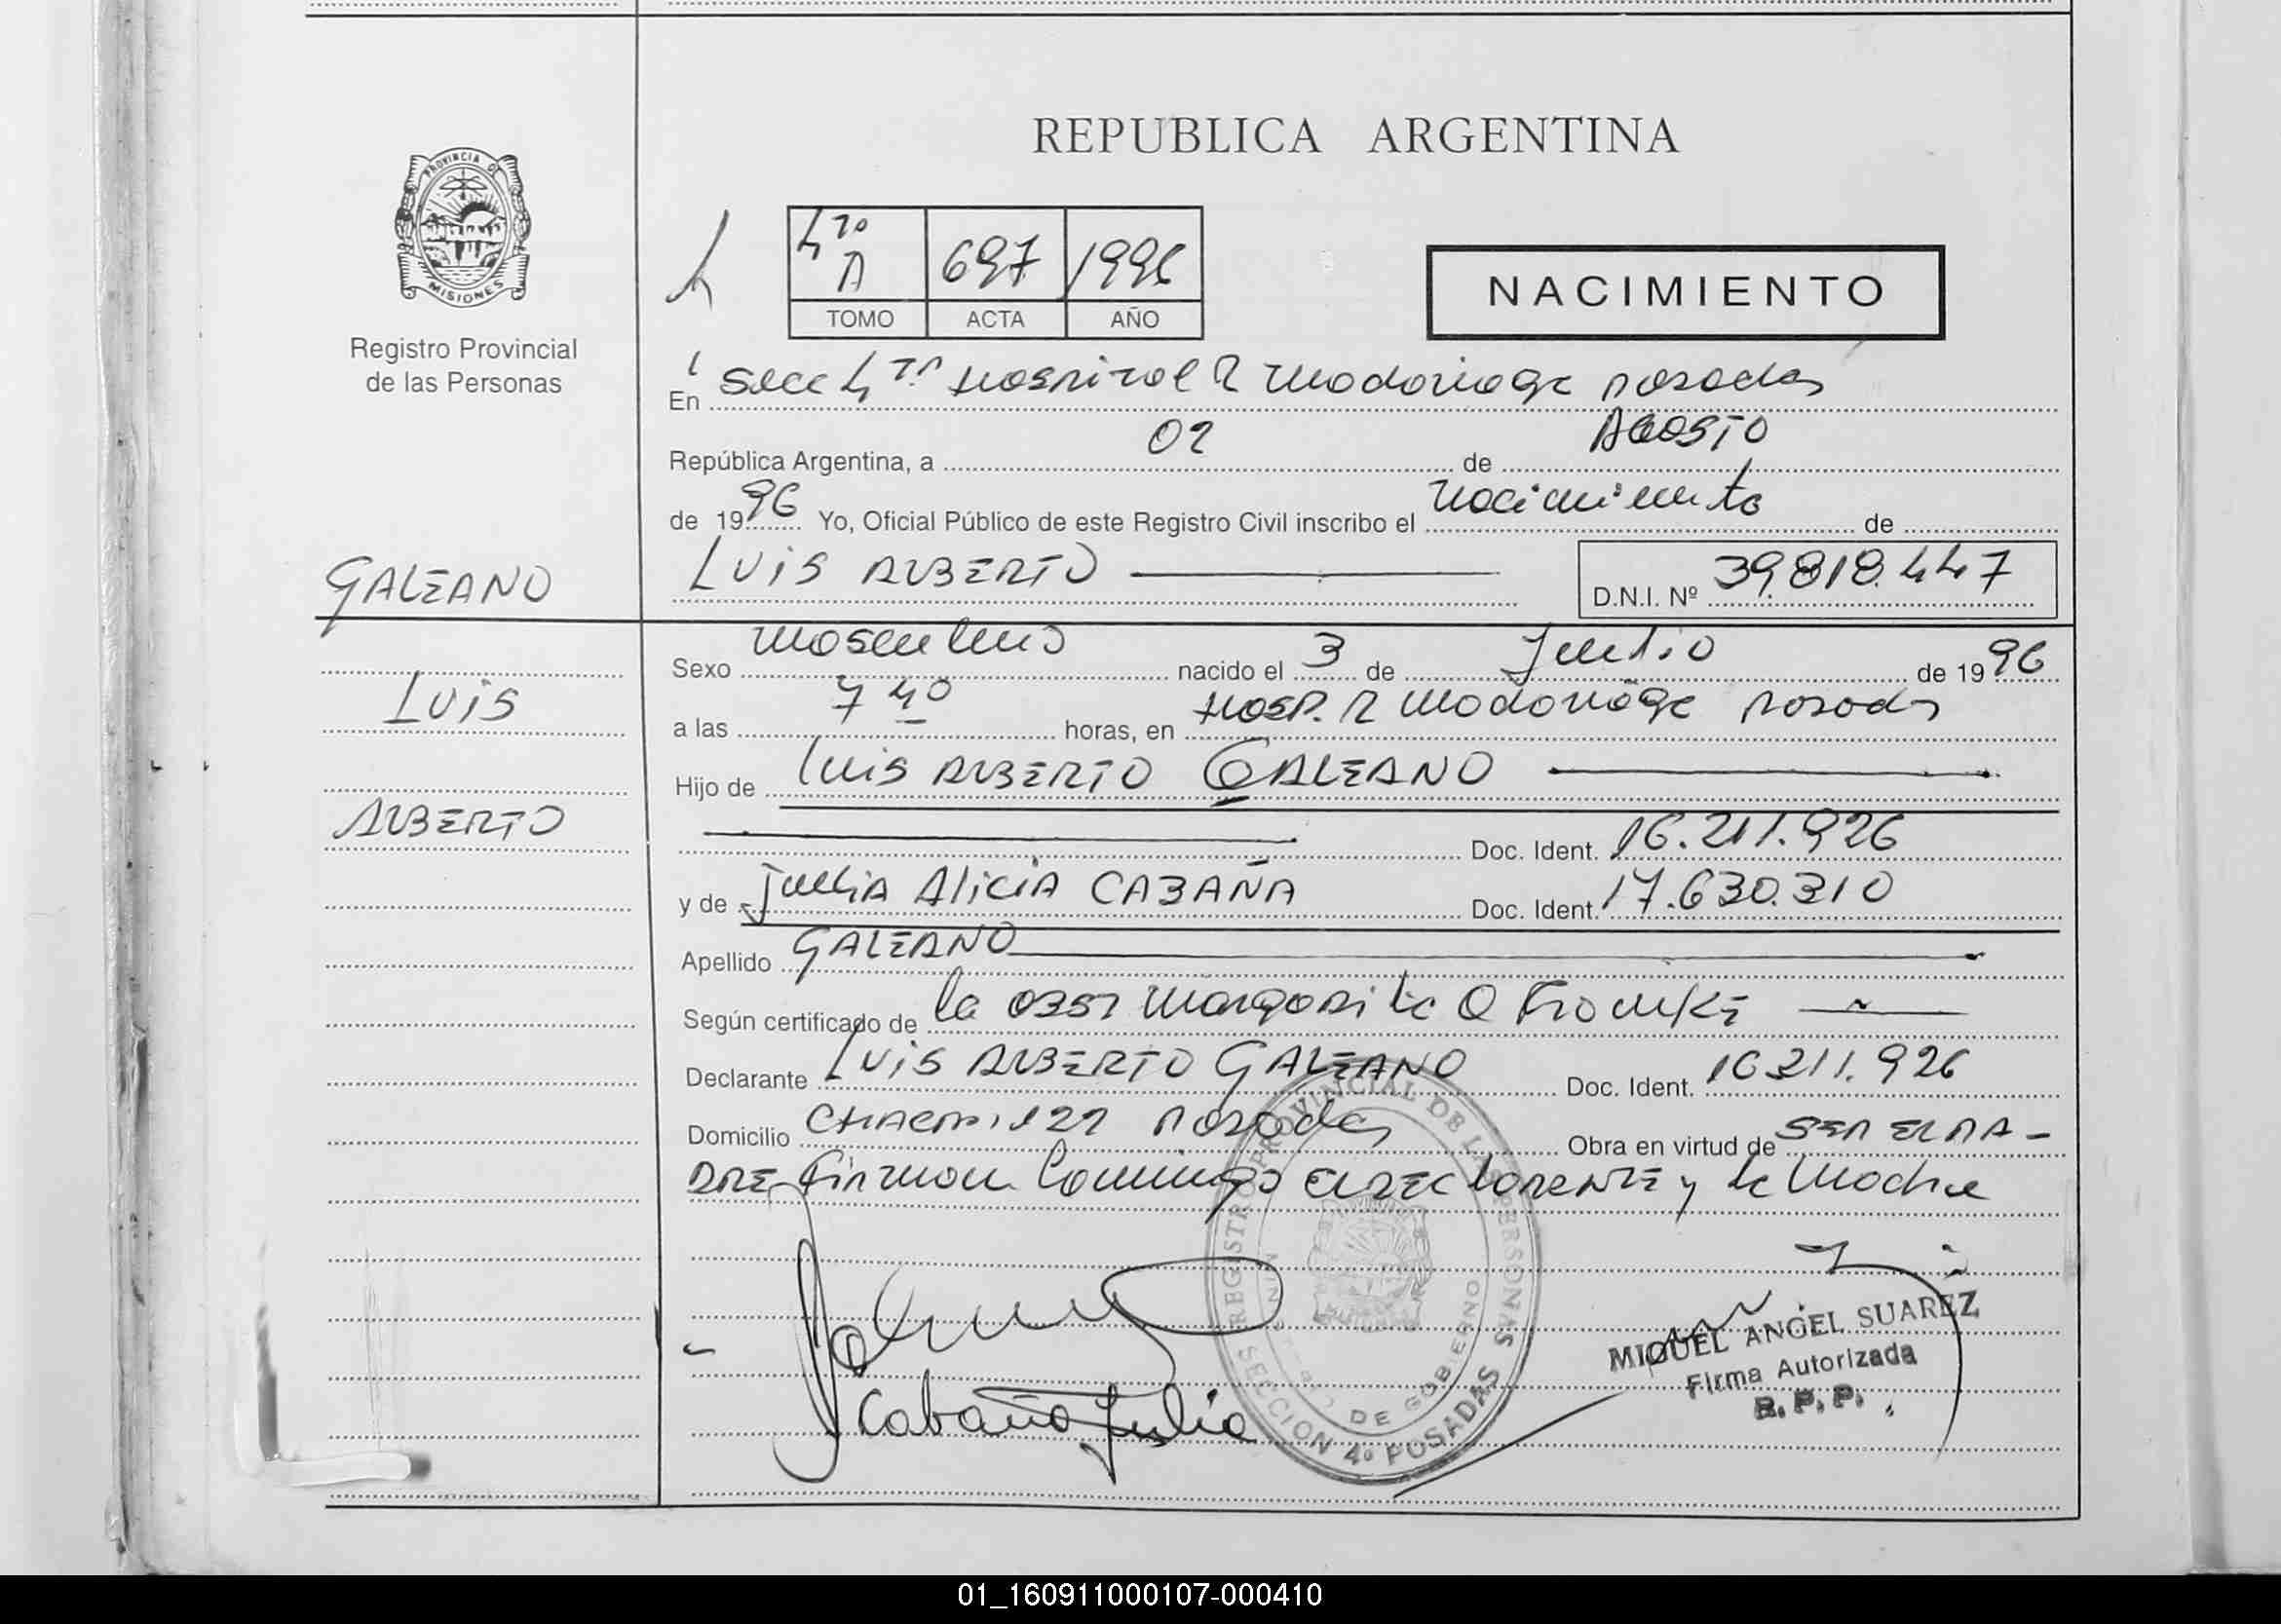 REPUBLICA ARGENTINA
PROVINCIA DE MISIONES
Registro Provincial
de las Personas
4to A 697 1996
TOMO ACTA AÑO
NACIMIENTO
En Secc 4ta Hospital R Madariaga Posadas
República Argentina, a 02 de AGOSTO
de 1996 Yo, Oficial Público de este Registro Civil inscribo el nacimiento de
LUIS ALBERTO D.N.I. Nº 39.818.447
GALEANO
LUIS
ALBERTO
Sexo masculino nacido el 3 de de 1996
a las 7 40 horas, en Hosp. R Madariaga Posadas
Hijo de Luis ALBERTO GALEANO
Doc. Ident. 16.211.926
y de Julia Alicia CABAÑA Doc. Ident. 17.630.310
Apellido GALEANO
Según certificado de la Obst Margarita
Declarante LUIS ALBERTO GALEANO Doc. Ident. 16211.926
Domicilio Posadas Obra en virtud de SER EL PA-
DRE- Firman Conmigo el DECLARANTE y la Madre
Cabaña Julia
REGISTRO PROVINCIAL DE LAS PERSONAS
MINISTERIO DE GOBIERNO
SECCION 4º POSADAS
MIGUEL ANGEL SUAREZ
Firma Autorizada
R. P. P.
01_160911000107-000410